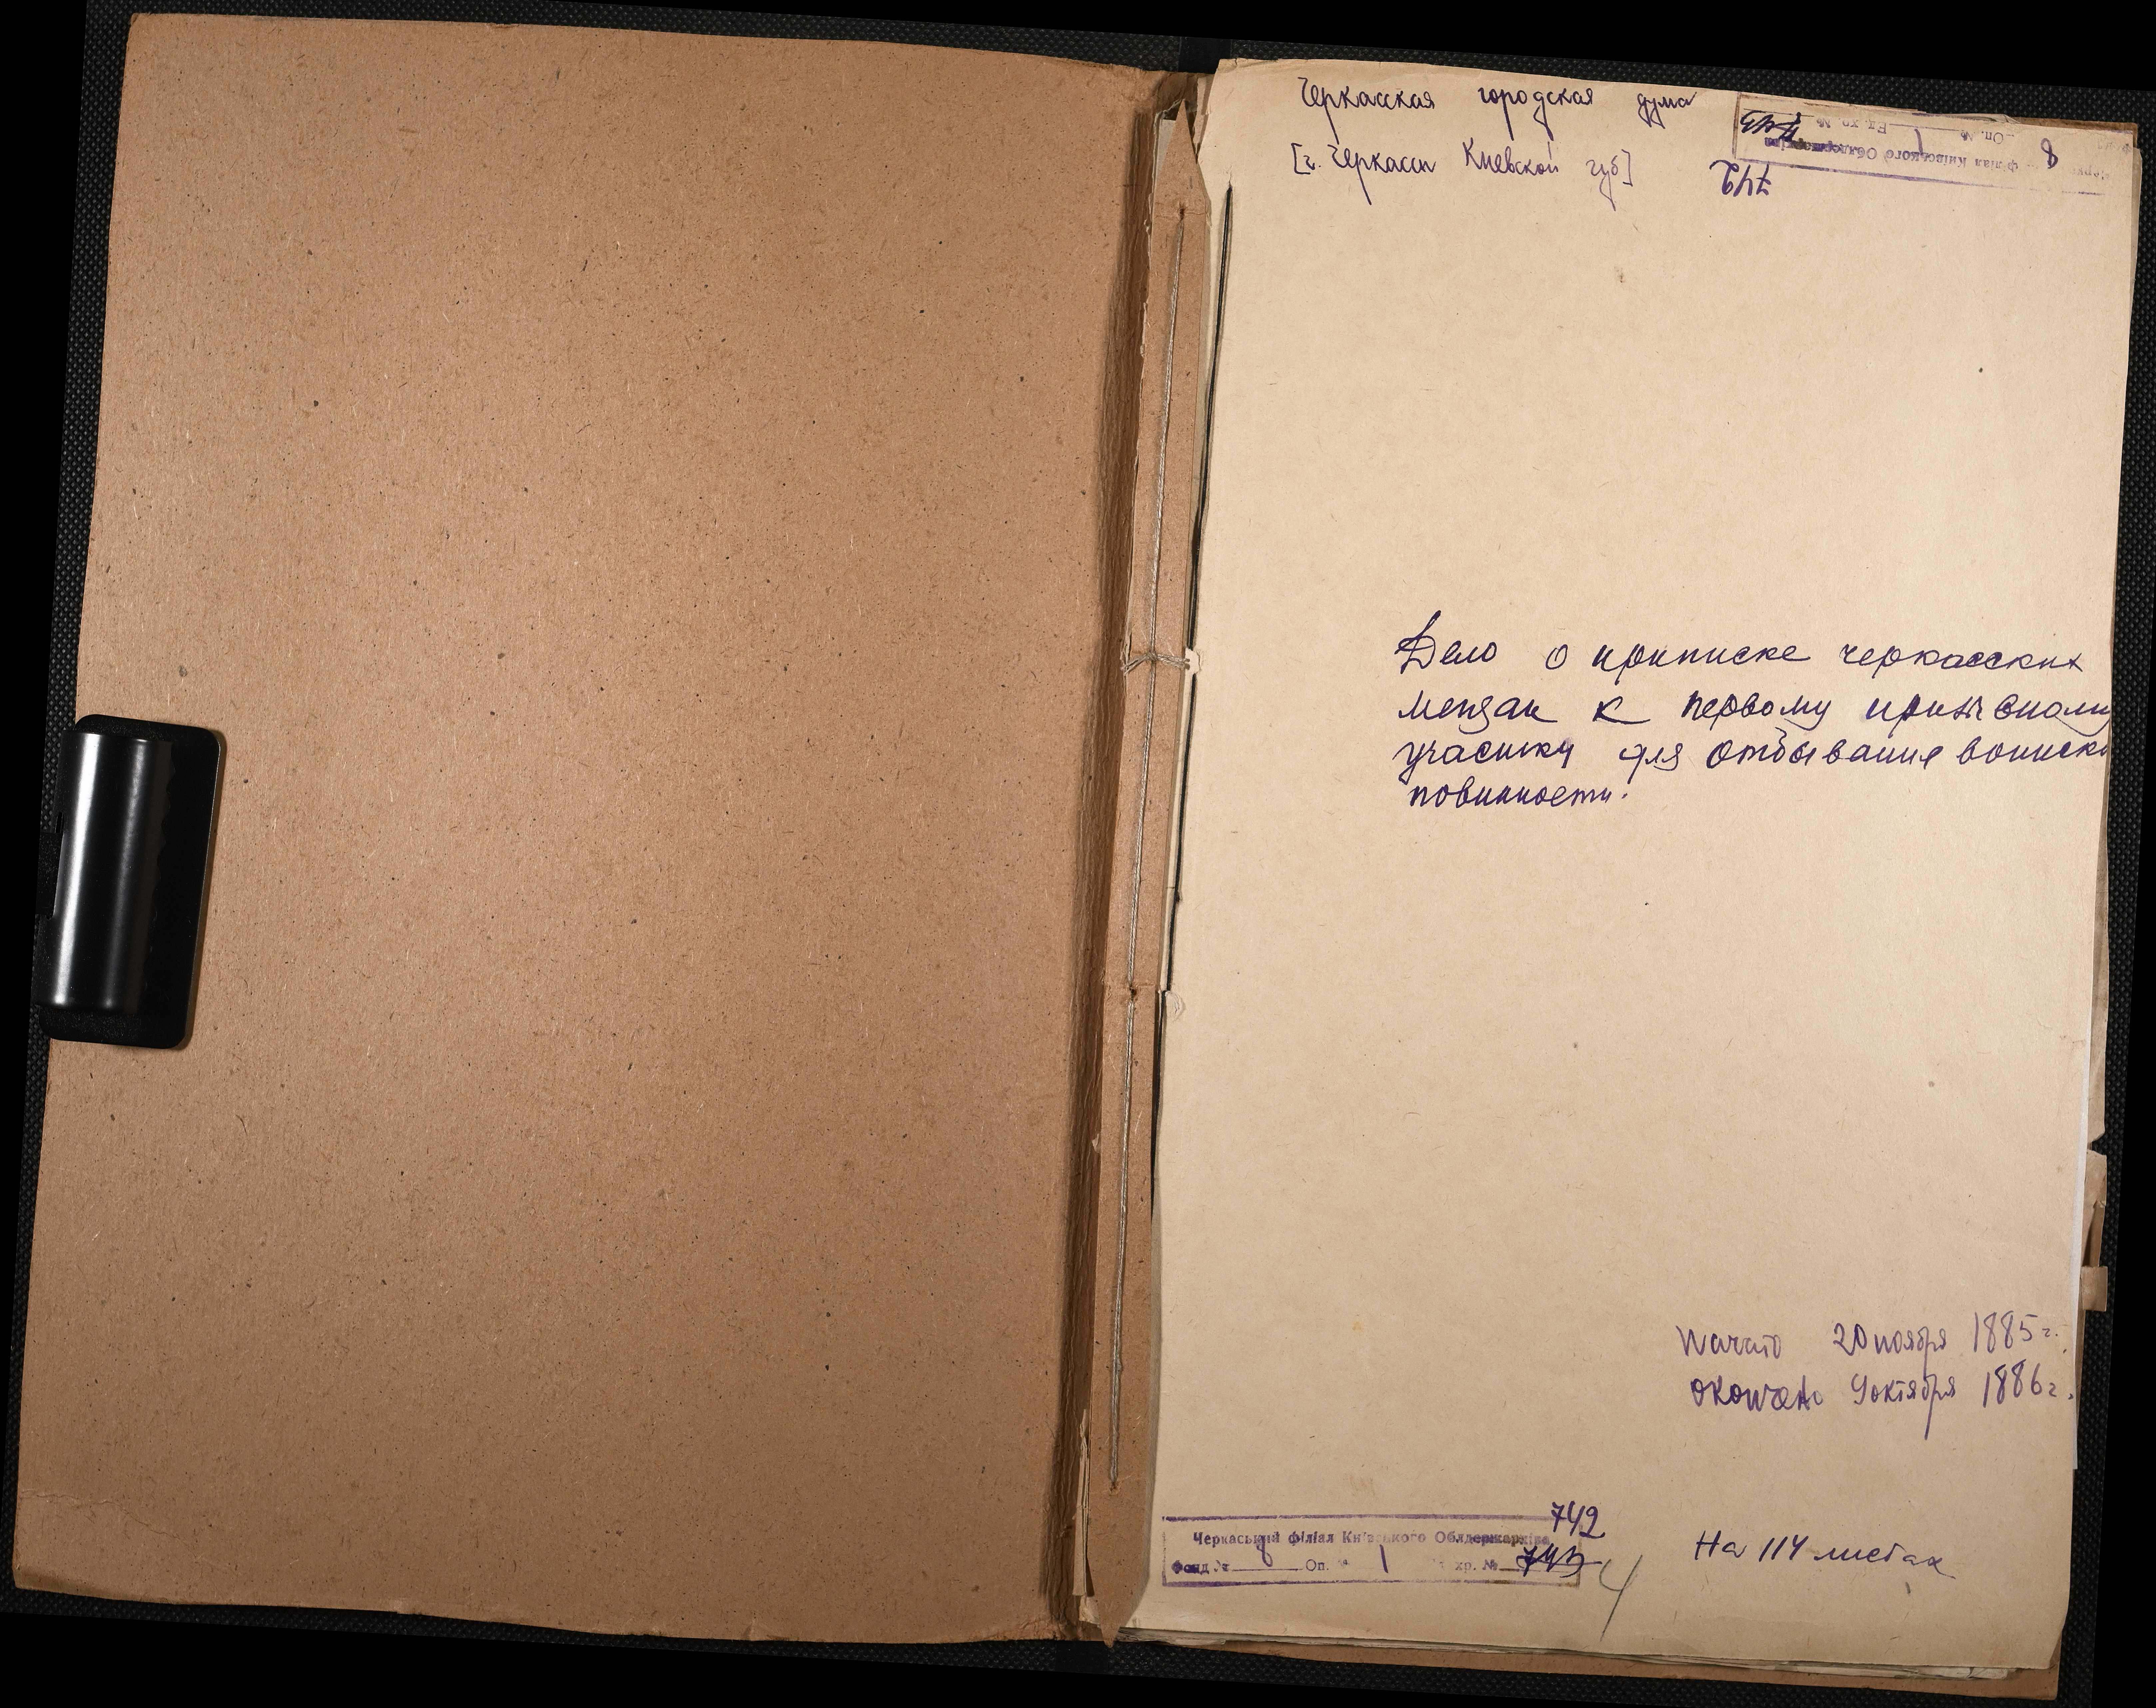 Черкасская городская дума
[г. Черкассы Киевской губ]
Філіал Київського Облдержархіва
8
Оп. № 1 Ед. хр. № 743
742
Дело о приписке черкасских
мещан к первому призывному
участку для отбывания воинско
повинности.
Начато 20 ноября 1885 г.
Окончено 9 октября 1886 г.
742
Черкаський філіал Київського Облдержархіва
Фонд № 8 Оп. № 1 хр. № 743
4
На 114 листах